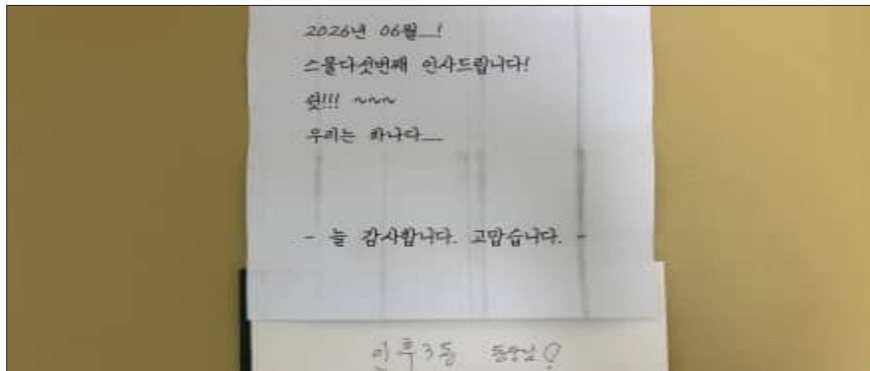 2026년 06월__!
스물다섯번째 인사드립니다!
쉿!!! ~~~
우리는 하나다__
- 늘 감사합니다. 고맙습니다. -
인후3동 동장님